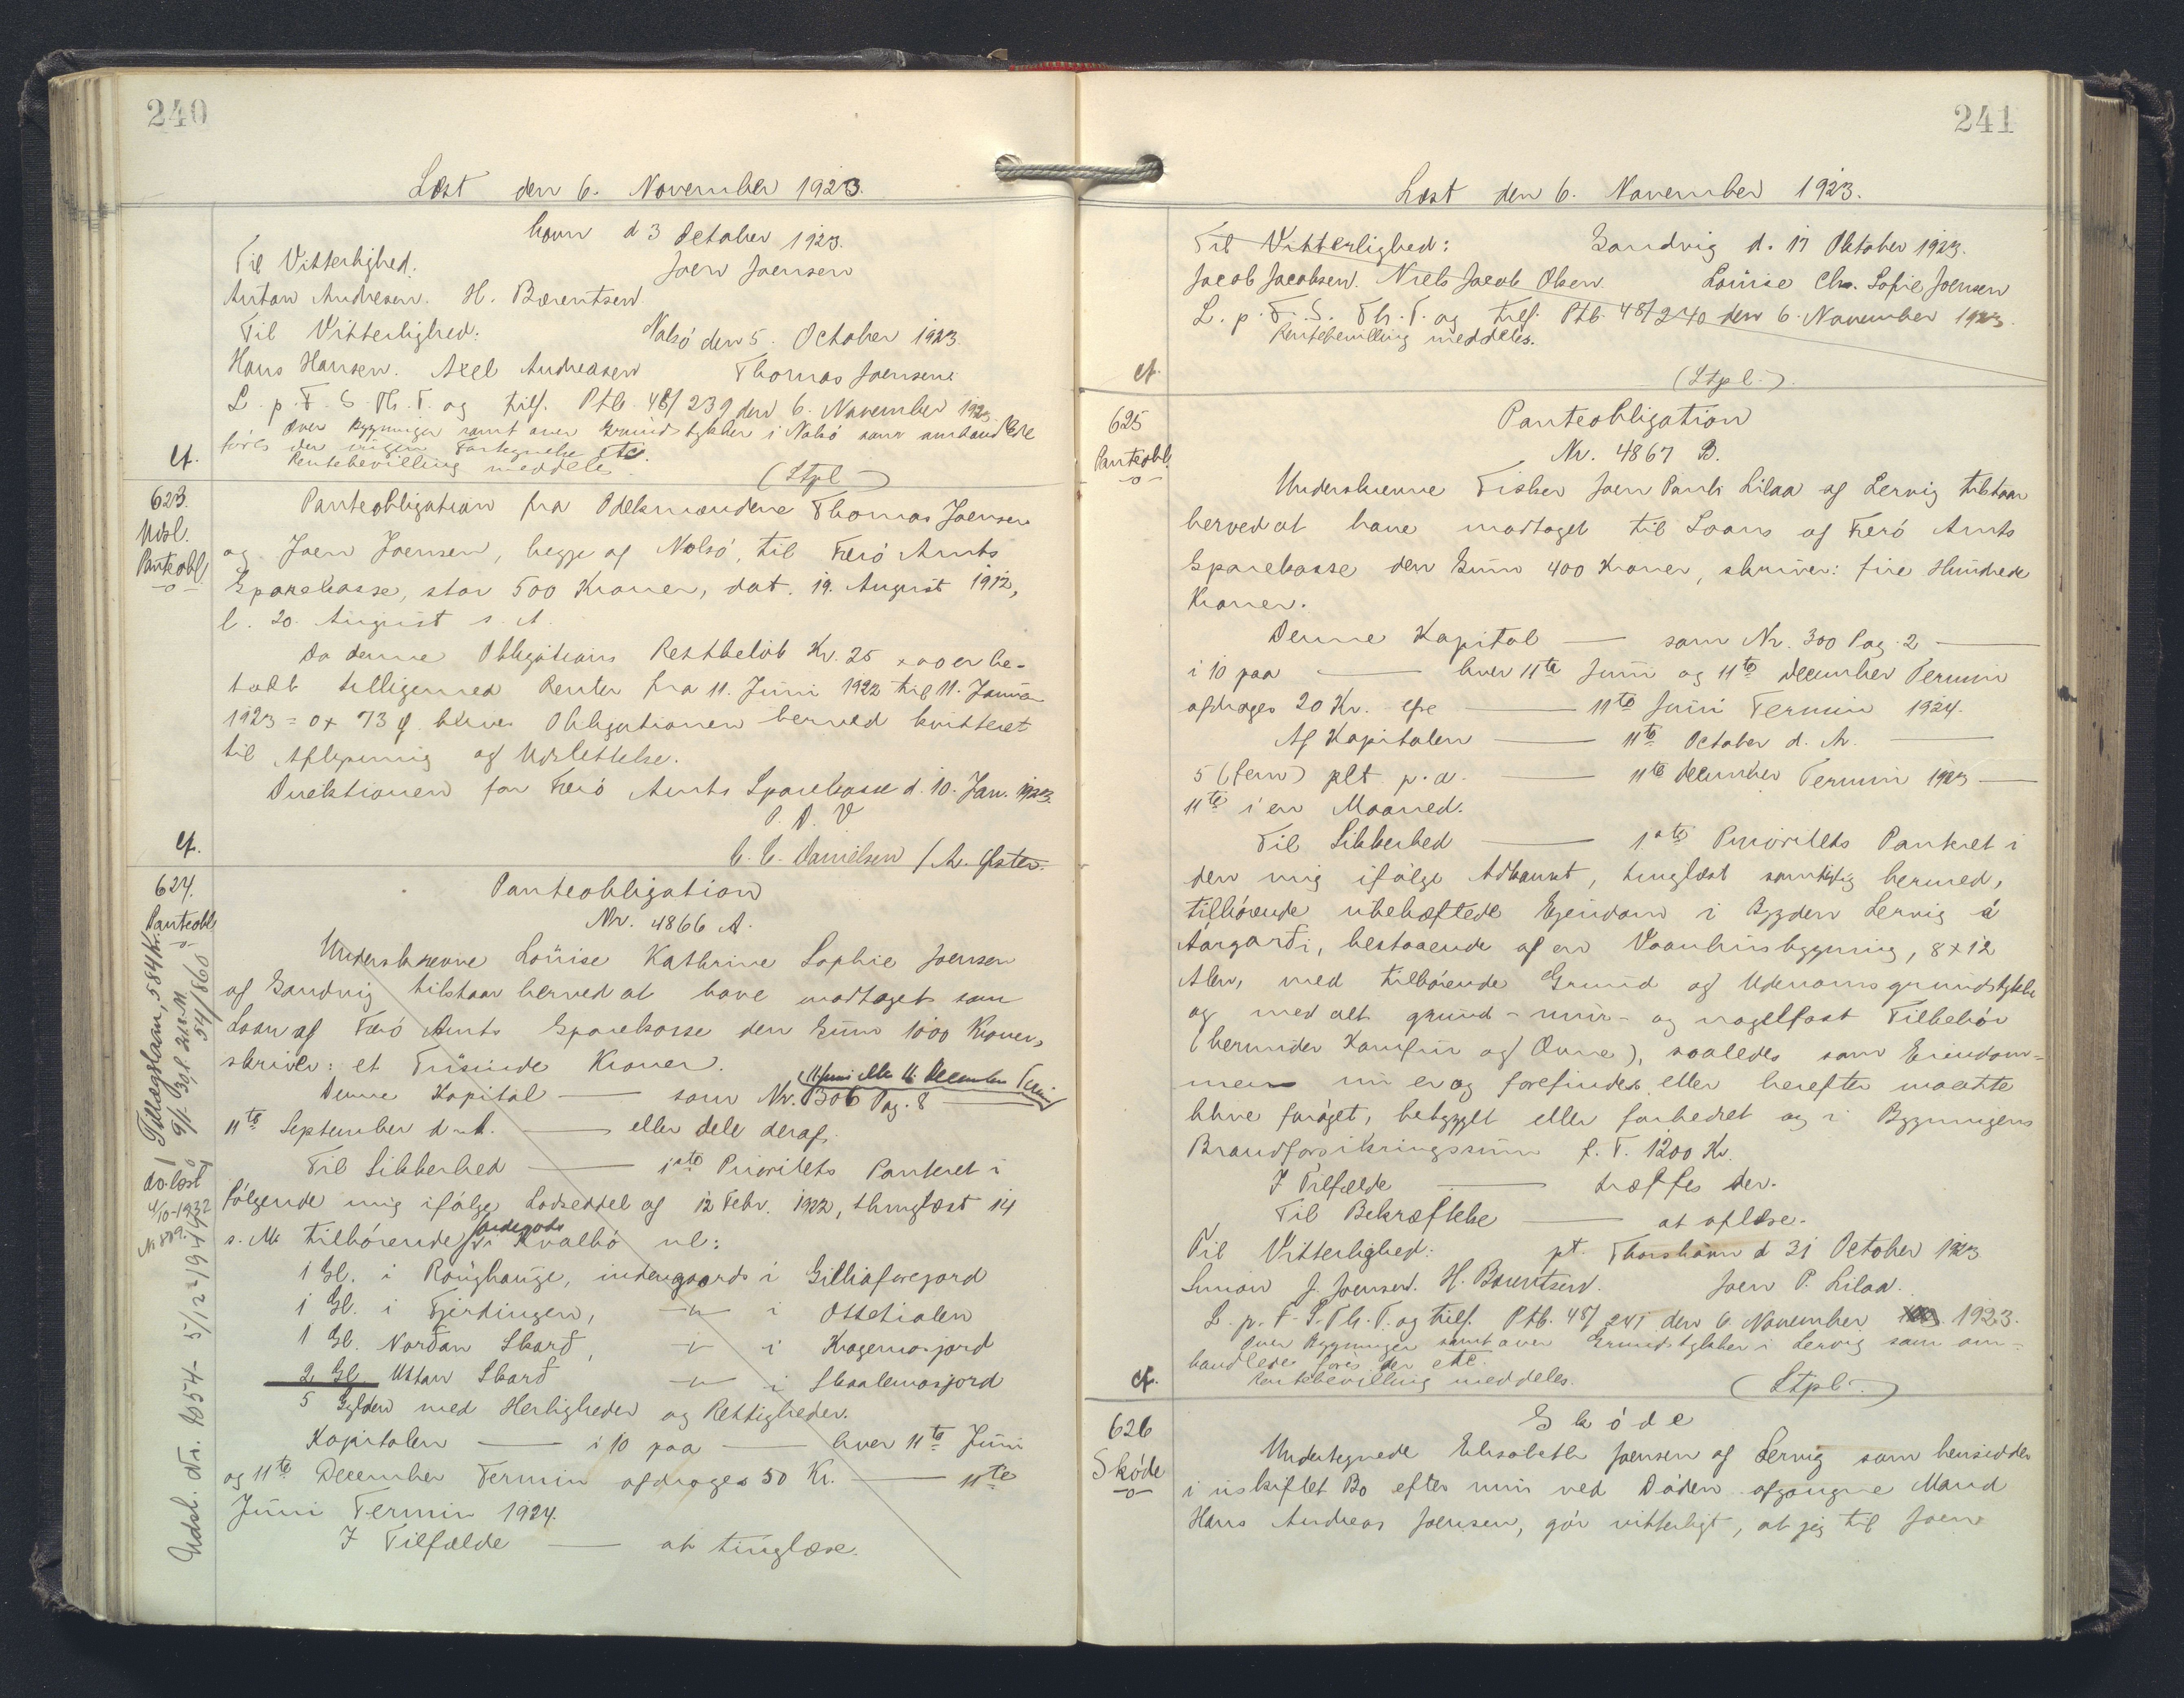 240
Læst den 6. November 1923.
havn d 3 October 1923.
Til Vitterlighed.
Joen Joensen
Anton Andreasen. H. Bærentsen
Til Vitterlighed:
Nolsö den 5. October 1923.
Hans Hansen. Axel Andreasen Thomas Joensen
L. p. F. S. Th. T. og tilf. Ptb. 48/239 den 6. November 1923.
Over Bygninger samt over Grundstykker i Nolsö som omhandlede
föres der ingen Fortegnelse etc.
Rentebevilling meddeles
(Stpl)
cf.
623.
Udsl.
Panteobl.
Panteobligation fra Odelsmændene Thomas Joensen
og Joen Joensen, begge af Nolsö, til Færö Amts
Sparekasse, stor 500 Kroner, dat. 19. August 1912,
l. 20. August s. A.
Da denne Obligations Restbelöb Kr. 25 × 00 er be-
talt tilligemed Renter fra 11. Juni 1922 til 11. Januar
1923 = 0 × 73 Ø bliver Obligationen herved kvitteret
til Aflysning og Udslettelse.
Direktionen for Færö Amts Sparekasse d. 10. Jan. 1923.
P. D. V
C. C. Danielsen / A. Öster.
cf.
624.
Panteobl.
Panteobligation
Nr. 4866 A.
Underskrevne Louise Kathrine Sophie Joensen
af Sandvig tilstaar herved at have modtaget som
Laan af Færö Amts Sparekasse den Sum 1000 Kroner,
skriver: et Tusinde Kroner.
11. Juni eller 11. December Termin
Denne Kapital — som Nr. 306 Pag. 8 —
11te September d. A. — eller dele deraf.
Til Sikkerhed — 1ste Prioritets Panteret i
fölgende mig ifölge Lodseddel af 12 Febr. 1922, thinglæst 14
s. M. tilhörende Jordegods i Kvalbö nl:
1 Gl. i Roughauge, indengaards i Gilliaforejord
1 Gl. i Fjerdingen, —"— i Ossetialen
1 Gl. Nordan Skard, —"— i Kragemosjord
2 Gl. Ustan Skard —"— i Skaalemosjord
5 Gylden med Herligheder og Rettigheder.
Kapitalen — i 10 paa — hver 11te Juni
og 11te December Termin afdrages 50 Kr. — 11te
Juni Termin 1924.
I Tilfælde — at tinglæse.
Tillægslaan, 584 Kr.
54/860
Ao læst
4/10-1932
Nr 809.
Udsl. Nr. 1054 5/12 1944
241
Læst den 6. November 1923.
Til Vitterlighed: Sandvig d. 17 Oktober 1923.
Jacob Jacobsen. Niels Jacob Olsen. Louise Chr. Sofie Joensen
L. p. F. S. Th. T. og tilf. Ptb. 48/240 den 6. November 1923.
Rentebevilling meddeles.
cf.
(Stpl.)
625
Panteobl.
Panteobligation
Nr. 4867 B.
Underskrevne Fisker Joen Pauli Lilaa af Lervig tilstaar
herved at have modtaget til Laans af Færö Amts
Sparekasse den Sum 400 Kroner, skriver: fire Hundrede
Kroner.
Denne Kapital — som Nr. 300 Pag. 2 —
i 10 paa — hver 11te Juni og 11te December Termin
afdrages 20 Kr. — 11te Juni Termin 1924.
Af Kapitalen — 11te October d. A. —
5 (fem) pCt p. a. — 11te December Termin 1923 —
11te i en Maaned.
Til Sikkerhed — 1ste Prioritets Panteret i
den mig ifölge Adkomst, tinglæst samtidig hermed,
tilhörende ubehæftede Ejendom i Bygden Lervig á
Áargardi, bestaaende af en Vaanhusbygning, 8 × 12
Alen, med tilhörende Grund og Udenomsgrundstykke
og med alt grund- mur- og nagelfast Tilbehör
(herunder Komfur og Ovne), saaledes som Eiendom-
men nu er og forefindes eller herefter maatte
blive foröget, bebygget eller forbedret og i Bygningens
Brandforsikringssum f. T. 1200 Kr.
I Tilfælde — træffes der.
Til Bekræftelse — at aflæse.
Til Vitterlighed: pt. Thorshavn d 31 October 1923
Simon J. Joensen. H. Bærentsen. Joen P. Lilaa.
L. p. F. S. Th. T. og tilf. Ptb. 48/241 den 6. November 1923.
Over Bygninger samt over Grundstykker i Lervig som om-
handlede föres der etc.
Rentebevilling meddeles.
cf.
(Stpl.)
626
Sköde
Sköde
Undertegnede Elisabeth Joensen af Lervig som hensidder
i uskiftet Bo efter min ved Döden afgangne Mand
Hans Andreas Joensen, gör vitterligt, at jeg til Joen